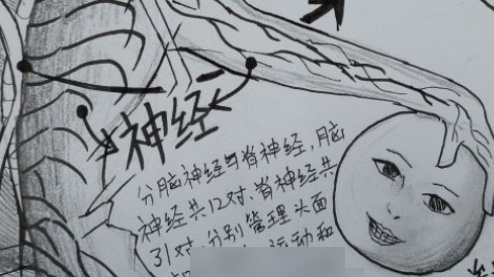 神经
分脑神经与脊神经，脑
神经共12对，脊神经共
31对，分别管理头面
运动和